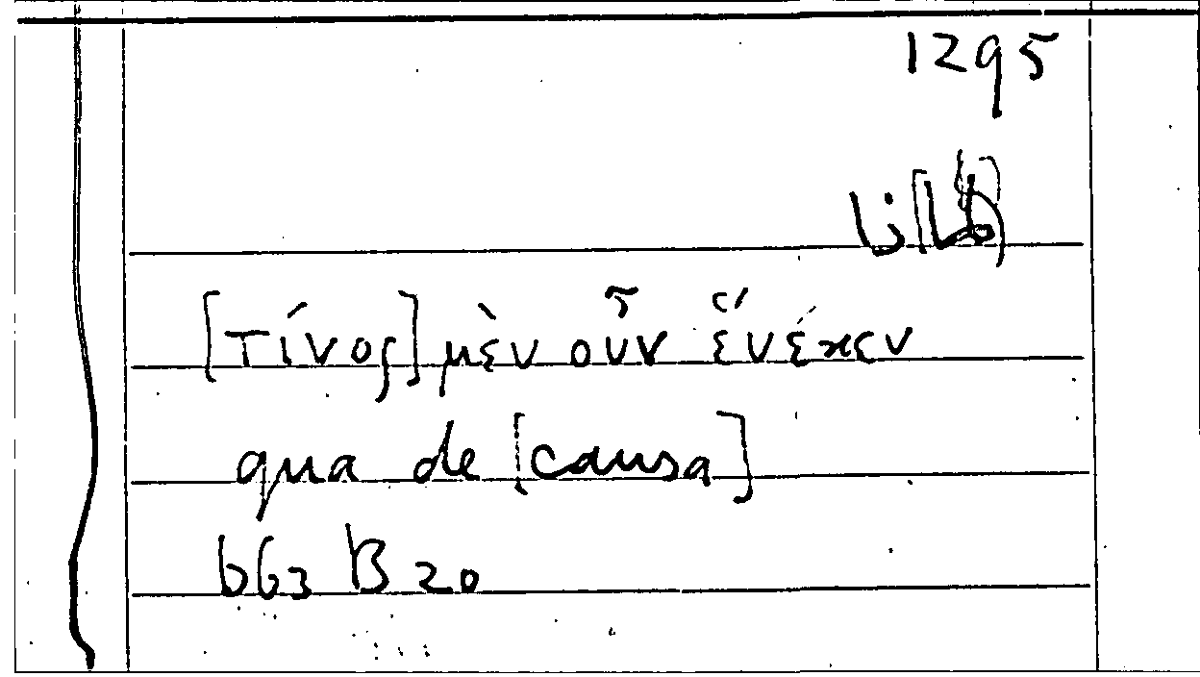 1295
[τίνος] μὲν οὖν ἕνέκεν
qua de [causa]
663 B 20